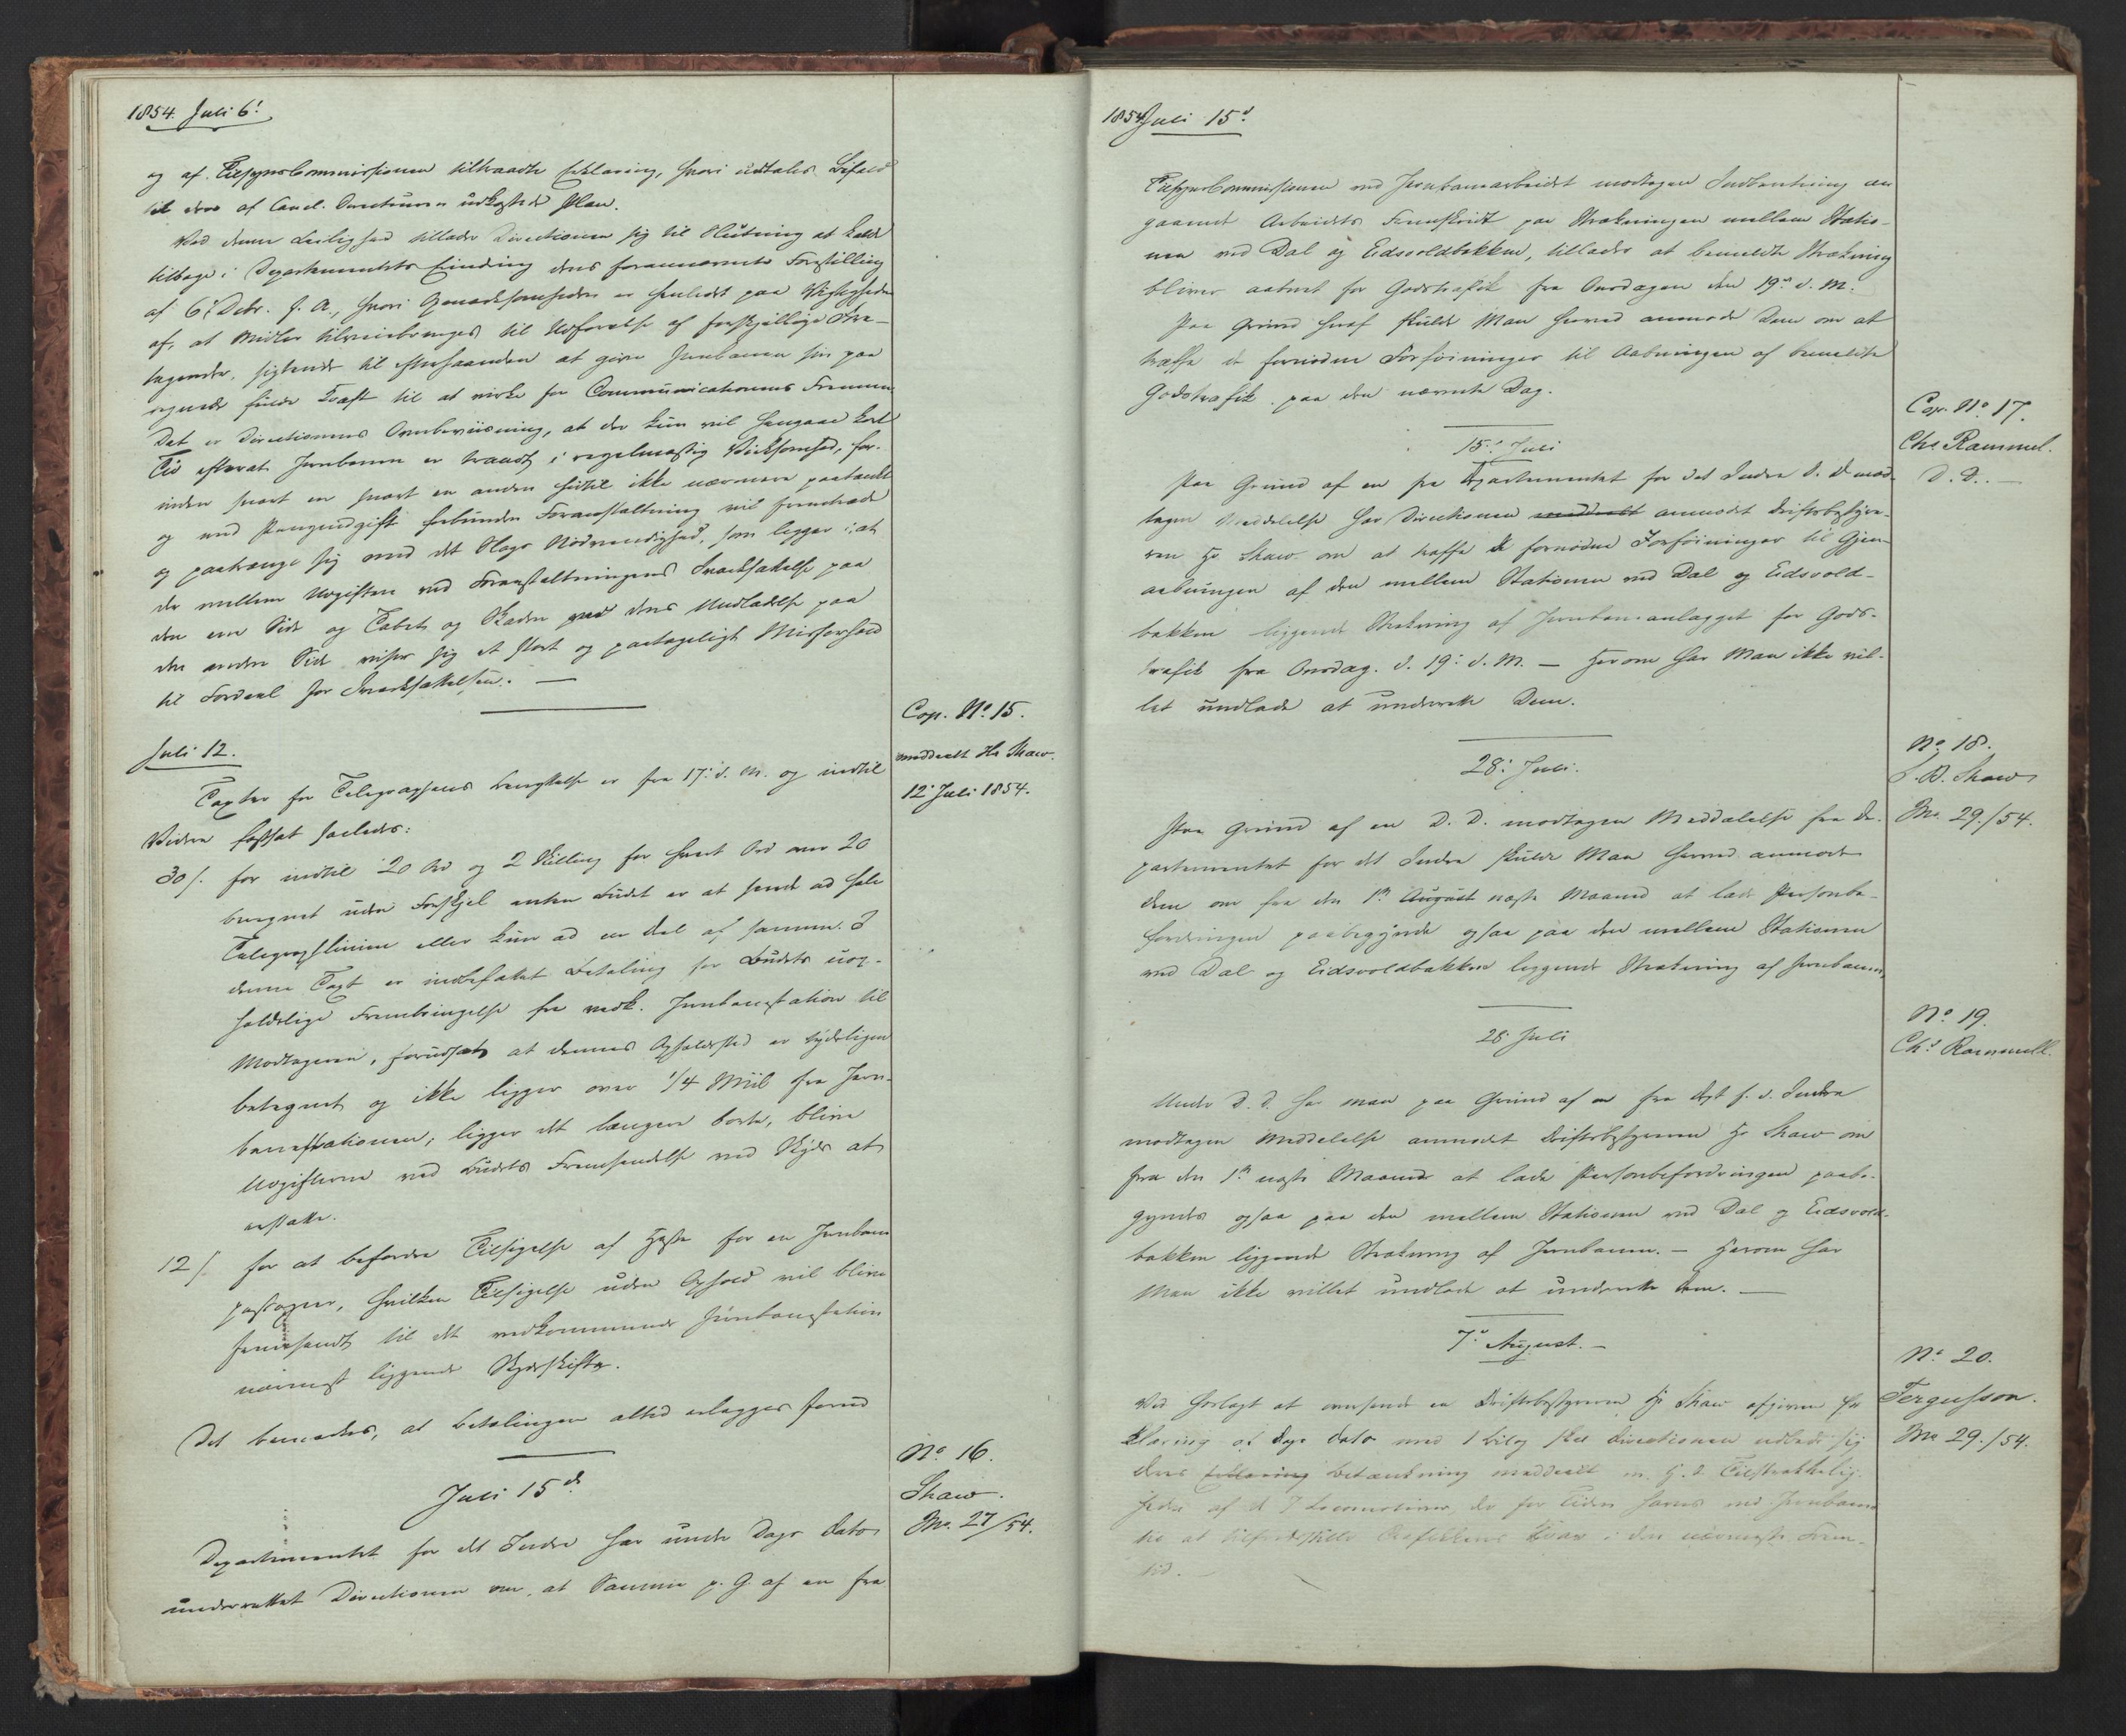 1854. Juli 6!
og af TilsynsCommissionen tiltraadte Erklæring, hvori udtales Bifald
til den af Canal Directeuren udkastede Plan.
Ved denne Leilighed tillader Directionen sig til Slutning at kalde
tilbage i Departementets Erindring dens forannævnte Forestilling
af 6te Debr. f. A., hvori Opmærksomheden er henledet paa Vigtigheden
af, at Midler tilveiebringes til Udførelse af forskjellige Fore-
tagender, sigtende til efterhaanden at give Jernbanen sin paa
regnede fulde Kraft til at virke for Communicationens Fremme.
Det er Directionens Overbeviisning, at der kun vil hengaae kort
Tid efterat Jernbanen er traadt i regelmæssig Virksomhed, for-
inden snart en snart en anden hidtil ikke nærmere paatænkt
og med Pengeudgift forbunden Foranstaltning vil fremtræde
og paatrænge sig med det Slags Nødvendighed, som ligger i: at
der mellem Udgiften ved Foranstaltningens Iværksættelse paa
den ene Side og Tabet og Skaden ved dens Undladelse paa
den anden Side viser sig et stort og paatageligt Misforhold
til Fordeel for Iværksættelsen. —
Juli 12.
Cop. No. 15.
meddeelt Hr Shaw.
12' Juli 1854.
Taxten for Telegraphens Benyttelse er fra 17' d. M. og indtil
Videre fastsat saaledes:
30 s. for indtil 20 Ord og 2 Skilling for hvert Ord over 20
beregnet uden Forskjel enten Budet er at sende ad hele
Telegraphlinien eller kun ad en Deel af samme. I
denne Taxt er indbefattet Betaling for Budets uop-
holdelige Frembringelse fra vedk. Jernbanestation til
Modtageren, forudsat at dennes Opholdsted er tydeligen
betegnet og ikke ligger over 1/4 Miil fra Jern-
banestationen; ligger det længere borte, blive
Udgifterne ved Budets Fremsendelse med Skyds at
erstatte.
12 s. for at befordre Tilsigelse af Heste for en Jernbane
passageer, hvilken Tilsigelse uden Ophold vil blive
fremsendt til det vedkommende Jernbanestation
nærmest liggende Skydsskifte.
Det bemærkes, at Betalingen altid erlægges forud
Juli 15de
No. 16.
Shaw.
Mo. 27/54.
Departementet for det Indre har under Dags Dato
underrettet Directionen om, at Samme p. G. af en fra
1854 Juli 15d
TilsynsCommissionen ved Jernbanearbeidet modtagen Indberetning an
gaaende Arbeidets Fremskridt paa Strækningen mellem Statio-
nen ved Dal og Eidsvoldbakken, tillader at bemeldte Strækning
bliver aabnet for Godstrafik fra Onsdagen den 19de d. M.
Paa Grund heraf skulde Man herved anmode Dem om at
træffe de fornødne Forføininger til Aabningen af bemeldte
Godstrafik paa den nævnte Dag.
15' Juli
Cop. No. 17.
Chs Rammel.
D. D. —
Paa Grund af en fra Departementet for det Indre d. D mod-
tagen Meddelelse har Directionen meddeelt anmodet Driftsbestyre-
ren Hr Shaw om at træffe de fornødne Forføininger til Gjen-
aabningen af den mellem Stationen ved Dal og Eidsvold-
bakken liggende Strækning af Jernbaneanlægget for Gods-
trafik fra Onsdag d. 19' d. M. — Herom har Man ikke vil-
let undlade at underrette Dem.
28' Juli.
No. 18.
Shaw
Mo. 29./54.
Paa Grund af en D. D. modtagen Meddelelse fra De-
partementet for det Indre skulde Man herved anmode
Dem om fra den 1ste August næste Maaned at lade Personbe-
fordringen paabegynde ogsaa paa den mellem Stationen
ved Dal og Eidsvoldbakken liggende Strækning af Jernbanen,
28' Juli
No. 19.
Chs Rammell.
Under D. D. har man paa Grund af en fra Dpt f. d. Indre
modtagen Meddelelse anmodet Driftsbestyreren Hr Shaw om
fra den 1ste næste Maaned at lade Personbefordringen paabe-
gyndes ogsaa paa den mellem Stationen ved Dal og Eidsvold-
bakken liggende Strækning af Jernbanen. — Herom har
Man ikke villet undlade at underrette Dem. —
7' August. —
No. 20.
Fergusson.
Mo 29./54.
Ved hoslagt at oversende en Driftsbestyreren Hr Shaw afgiven Er
klæring af Dags Dato med 1 Bilag skal Directionen udbede sig
Deres Erklæring Betænkning meddeelt m. H. t. Tilstrækkelig-
heden af de 7 Locomotiver, der for Tiden haves ved Jernbanen
til at tilfredsstille Trafikens Krav i den nærmeste Frem-
tid.